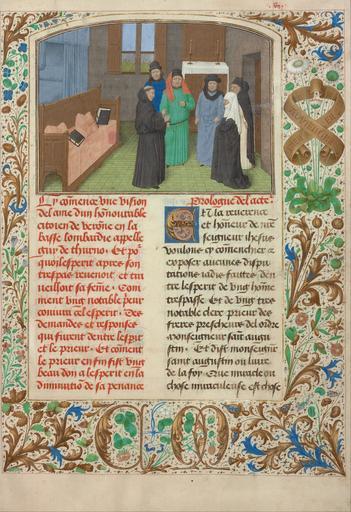 Cy commence vne vision
de lame dun honnourable
citoien de verone en la
basse lombardie appelle
guy de thurno. Et po
quoy lesperit apres son
trespas reuenoit et tra
ueilloit sa feme. Com
ment vng notable prieur
coniura cel esperit. Des
demandes et responses
qui furent dentre lesprit
et le prieur. Et comēt
le prieur en fin fist vng
beau don a lesperit en la
diminution de sa penance
Prologue del acte.
En la reuerence
et honneur de nre
seigneur ihesus
voulons cy commencher a
exposer aucunes dispu
tations iadis faittes den
tre lesperit de vng home
trespasse. Et de vng tres
notable clerc prieur des
freres prescheurs del ordre
monseigneur saint augu
stin. Et dist monseignr
saint augustin ou liure
de la foy. Que miracle ou
chose miraculeuse est chose